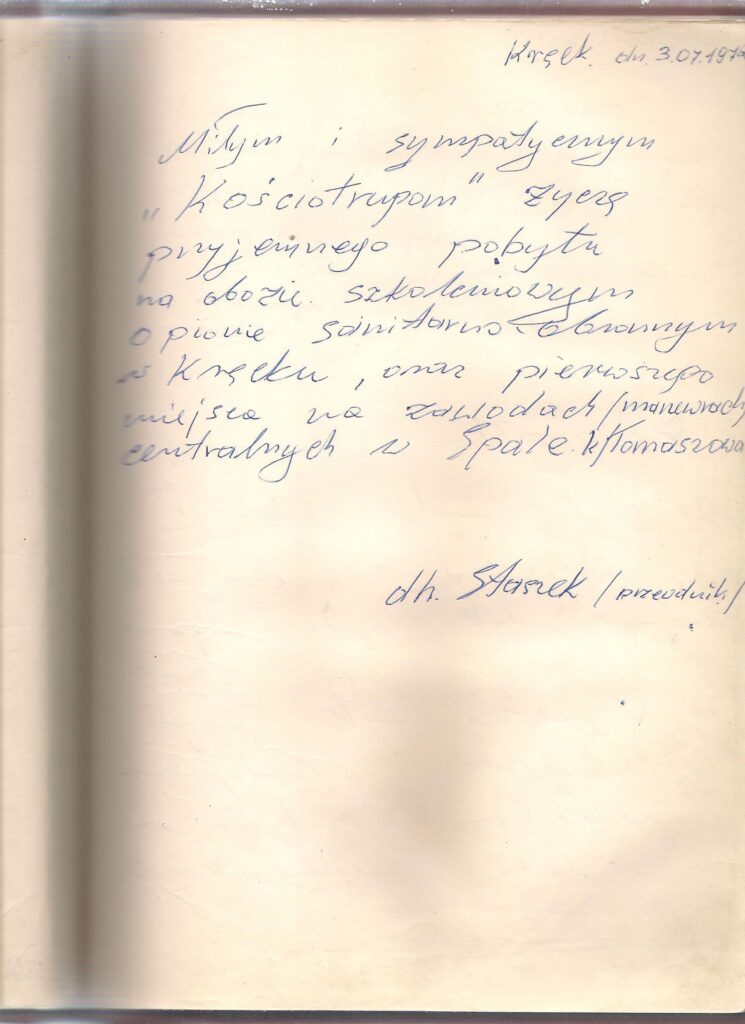 Kręćk. dn. 3.07.197
Miłym i sympatycznym
„Kościotrupom" życzą
przyjemnego pobytu
na obozie szkoleniowym
o pionie sanitarno-obronnym
w Kręćku, oraz pierwszego
miejsca na zawodach /manewrach/
centralnych w Spale k/Tomaszowa
dh. Staszek /przewodnik/